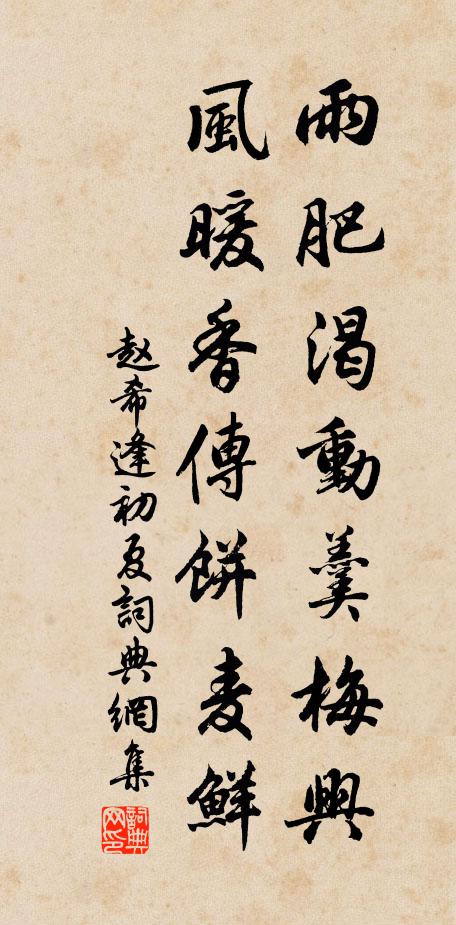 雨肥渴動羹梅興
風暖香傳餅麦鮮
赵希逢初夏詞典網集
詞典网印